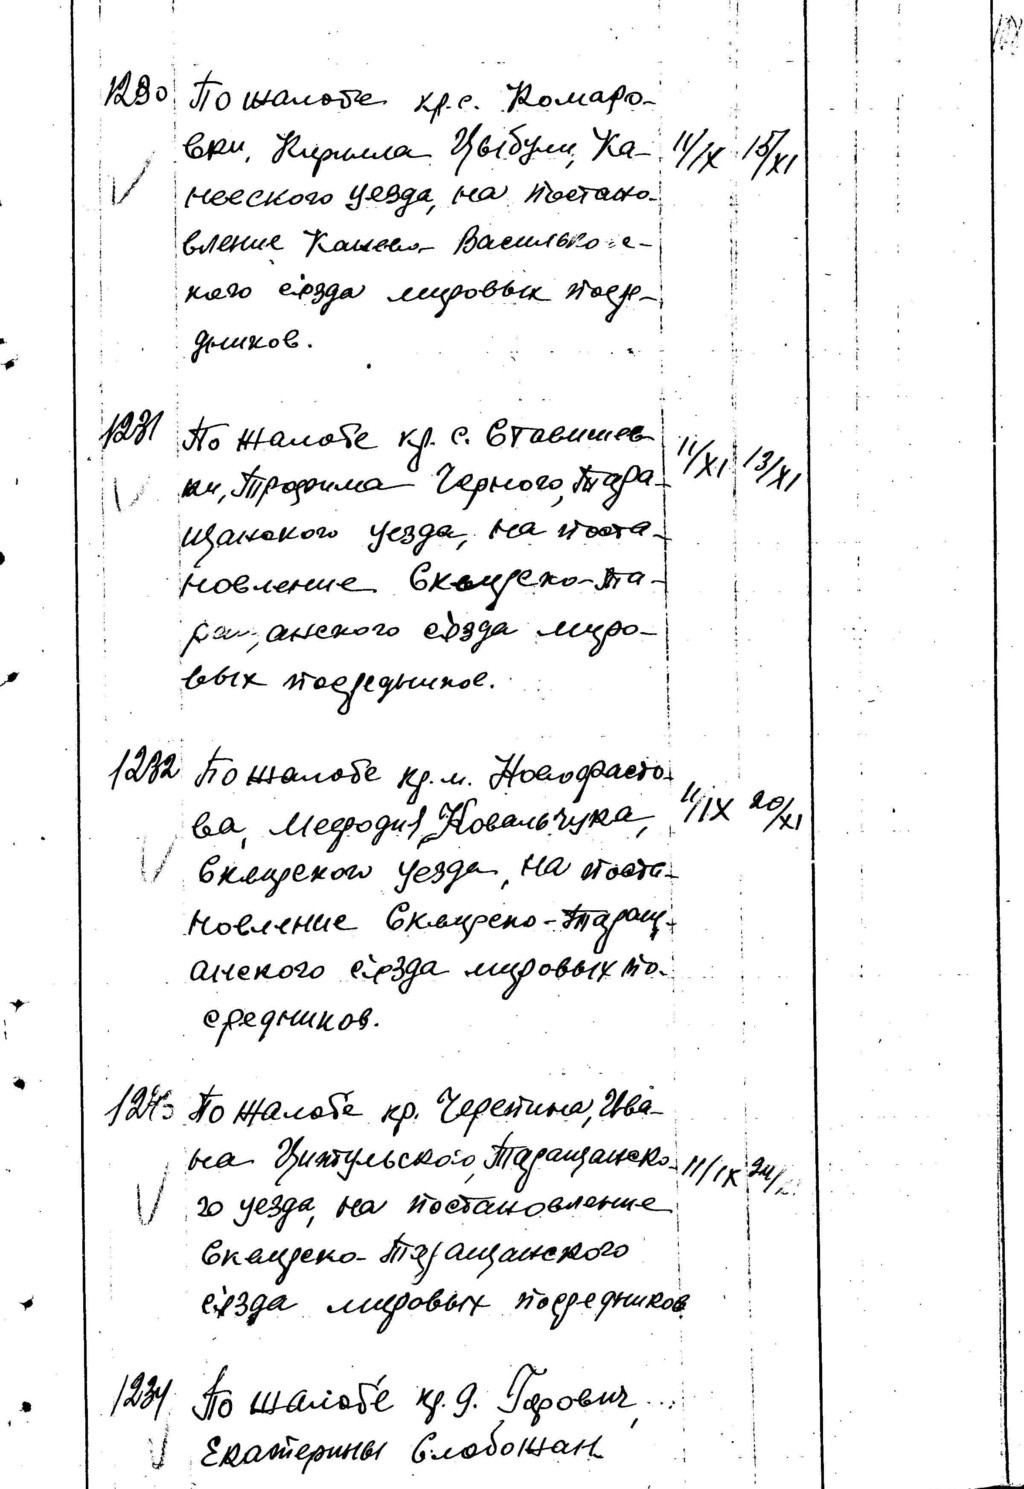 1230 По жалобе кр. с. Комаро-
вки, Кирилла Цыбули, Ка- 11/IX 15/XI
невского уезда, на постано-
вление Канево-Васильковс-
кого съезда мировых посре-
дников.
1231 По жалобе кр. с. Ставишев
ки, Трофима Черного, Тара- 11/XI 13/XI
щанского уезда, на поста-
новление Сквирско-Та-
ращанского съезда миро-
вых посредников.
1232 По жалобе кр. м. Новофасто-
ва, Мефодия Ковальчука, 11/IX 20/XI
Сквирского уезда, на поста-
новление Сквирско-Таращ-
анского съезда мировых по-
средников.
По жалобе кр. Черепина, Ива-
на Таращанско- 11/IX
го уезда, на постановление
Сквирско-Таращанского
съезда мировых посредников
1234 По жалобе кр. д.
Екатерины Слобожан